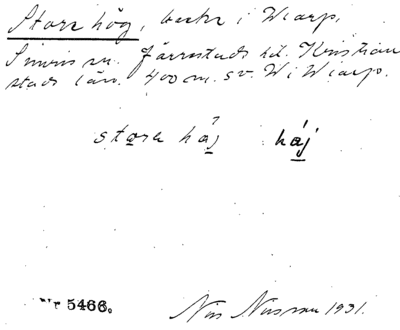 Stora hög, backe i Wiarp,
Simris sn. Järrestads hd. Kristian
stads län. 400 m. sv. W i Wiarp.
stora håj háj
Nr 5466.
Nils 1931.